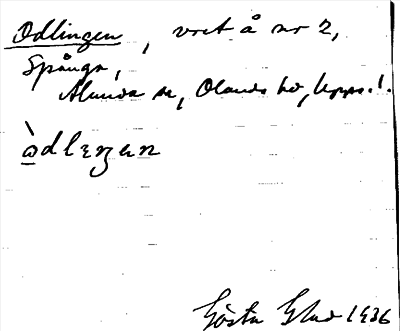 Odlingen, vret å nr 2,
Spånga,
Alunda sn, Olands hd, Upps. l.
òdleŋen
Gösta 1936